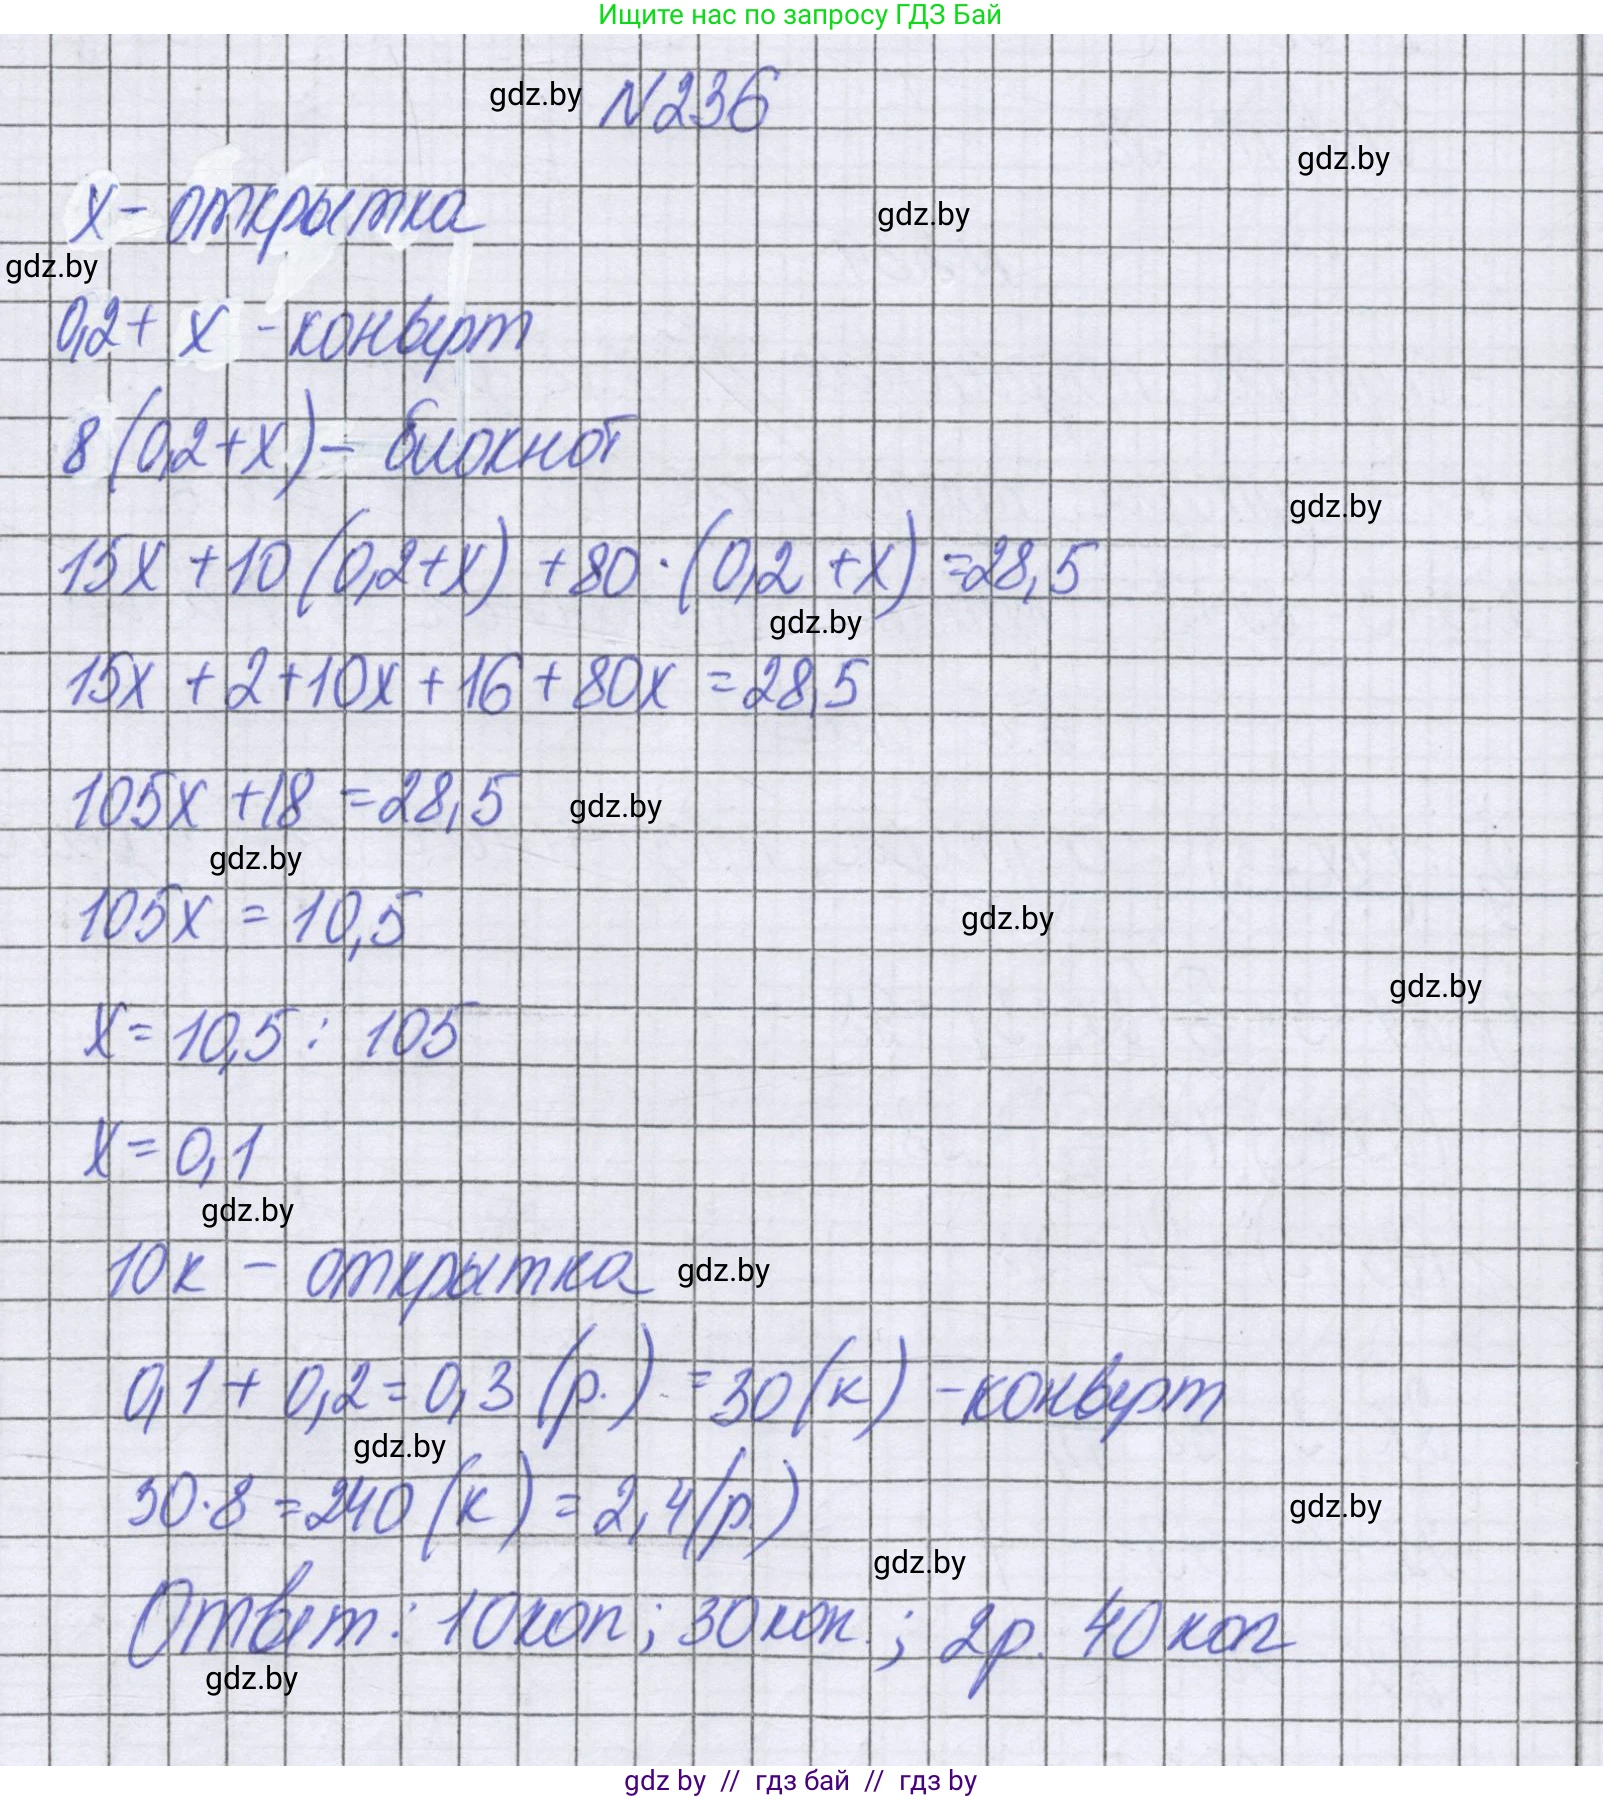 Ищите нас по запросу ГДЗ Бай
gdz.by N236
gdz.by
x - открытка gdz.by
gdz.by
0,2 + x - конверт
8 (0,2+x) - блокнот
gdz.by
15x + 10 (0,2+x) + 80 · (0,2 + x) = 28,5
gdz.by
15x + 2 + 10x + 16 + 80x = 28,5
105x + 18 = 28,5 gdz.by
gdz.by
105x = 10,5 gdz.by
gdz.by
x = 10,5 : 105
x = 0,1
gdz.by
10к - открытка gdz.by
0,1 + 0,2 = 0,3 (р.) = 30 (к) - конверт
gdz.by
30·8 = 240 (к) = 2,4 (р.)
gdz.by
gdz.by
Ответ: 10 коп; 30 коп.; 2р. 40 коп
gdz.by
gdz by // гдз бай // гдз by